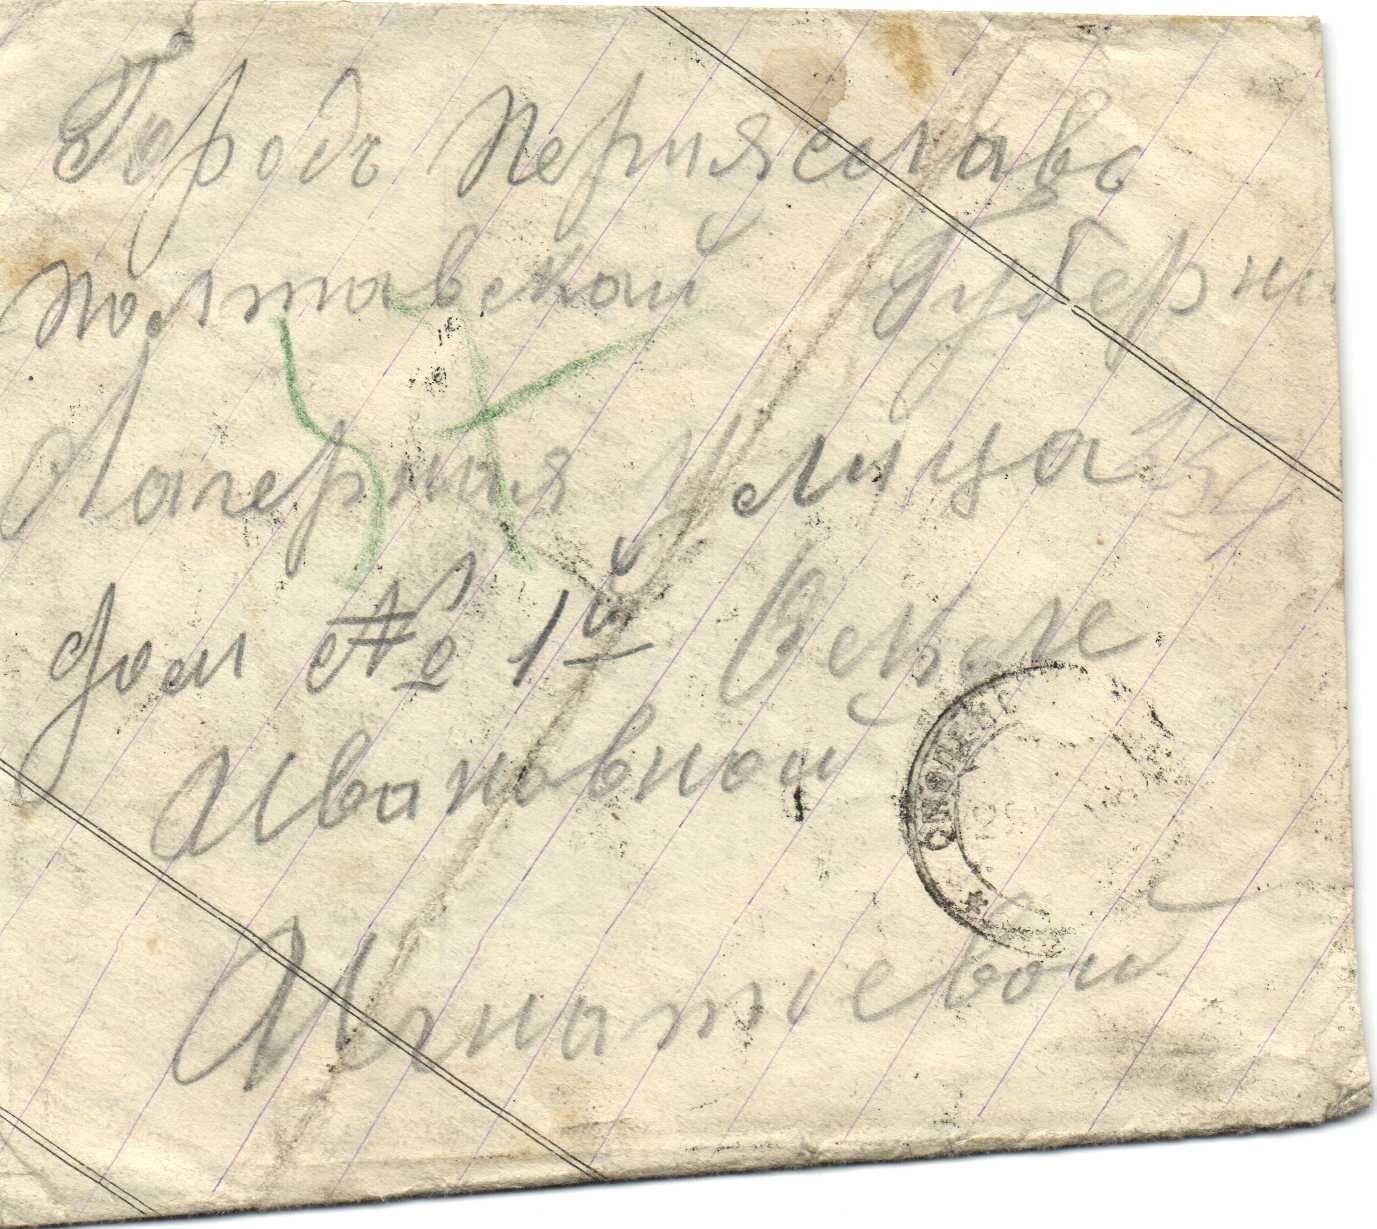 Городъ Периясславъ
Полтавской Губерни
Лагерная улица
дом № 1й
Ивановной
Игнатиевой